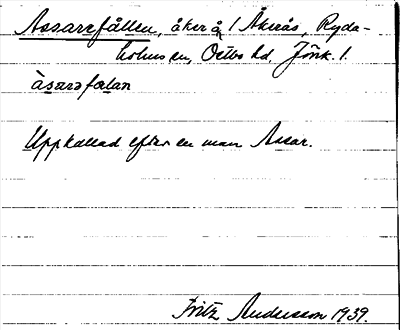 Assarefållen, åker å 1 Åkerås, Ryda-
holms sn, Östbo hd, Jönk. l.
àsarəfɷlan
Uppkallad efter en man Assar.
Fritz Andersson 1939.